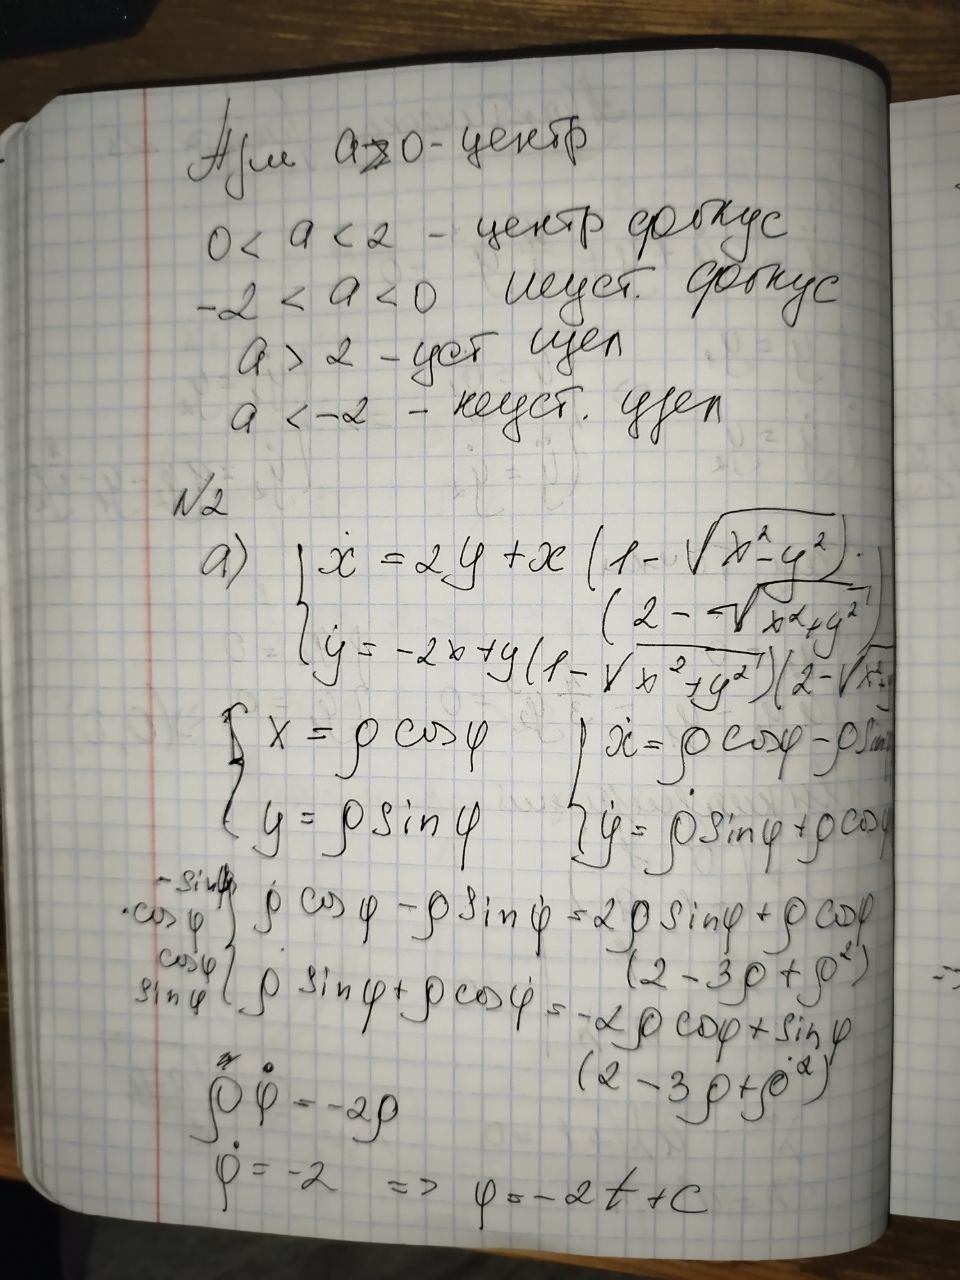 При a=0 - центр
0 < a < 2 - центр фокус
-2 < a < 0 неуст. фокус
a > 2 - уст узел
a < -2 - неуст. узел
№2
а) { ẋ = 2y + x (1 - √(x² - y²)) ·
(2 - √(x² + y²))
ẏ = -2x + y (1 - √(x² + y²)) (2 - √(x² + y
{ x = ρ cos φ { ẋ = ρ̇ cos φ - ρ sin
y = ρ sin φ ẏ = ρ̇ sin φ + ρ cos φ
-sin φ
· cos φ { ρ̇ cos φ - ρ sin φ̇ = 2ρ sin φ + ρ cos φ
(2 - 3ρ + ρ²)
cos φ
sin φ { ρ̇ sin φ + ρ cos φ̇ = -2ρ cos φ + sin φ
(2 - 3ρ + ρ²)
ρ φ̇ = -2ρ
φ̇ = -2 => φ = -2t + c